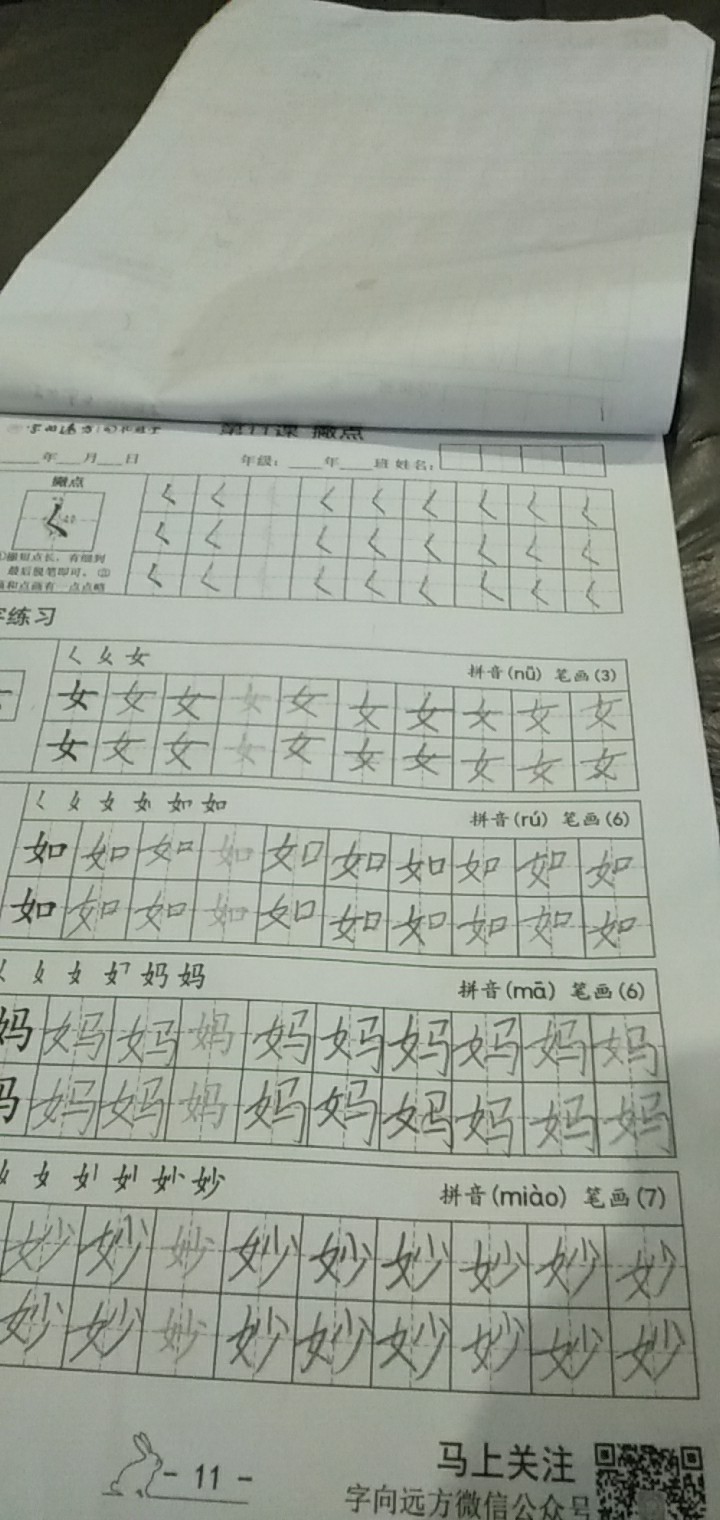 第11课 撇点
年 月 日 年级： 年 班 姓名：
撇点
ㄑ ㄑ ㄑ ㄑ ㄑ ㄑ ㄑ ㄑ
ㄑ ㄑ ㄑ ㄑ ㄑ ㄑ ㄑ ㄑ
ㄑ ㄑ ㄑ ㄑ ㄑ ㄑ ㄑ ㄑ
撇短点长，有细到
最后提笔即可。②
和点画有一点点略
字练习
女
拼音(nǚ) 笔画(3)
女 女 女 女 女 女 女 女 女 女
女 女 女 女 女 女 女 女 女 女
女 如
拼音(rú) 笔画(6)
如 如 如 如 如 如 如 如 如 如
如 如 如 如 如 如 如 如 如 如
女 妈 妈
拼音(mā) 笔画(6)
妈 妈 妈 妈 妈 妈 妈 妈 妈 妈
妈 妈 妈 妈 妈 妈 妈 妈 妈 妈
女 妙
拼音(miào) 笔画(7)
妙 妙 妙 妙 妙 妙 妙 妙 妙
妙 妙 妙 妙 妙 妙 妙 妙 妙
- 11 -
马上关注
字向远方微信公众号